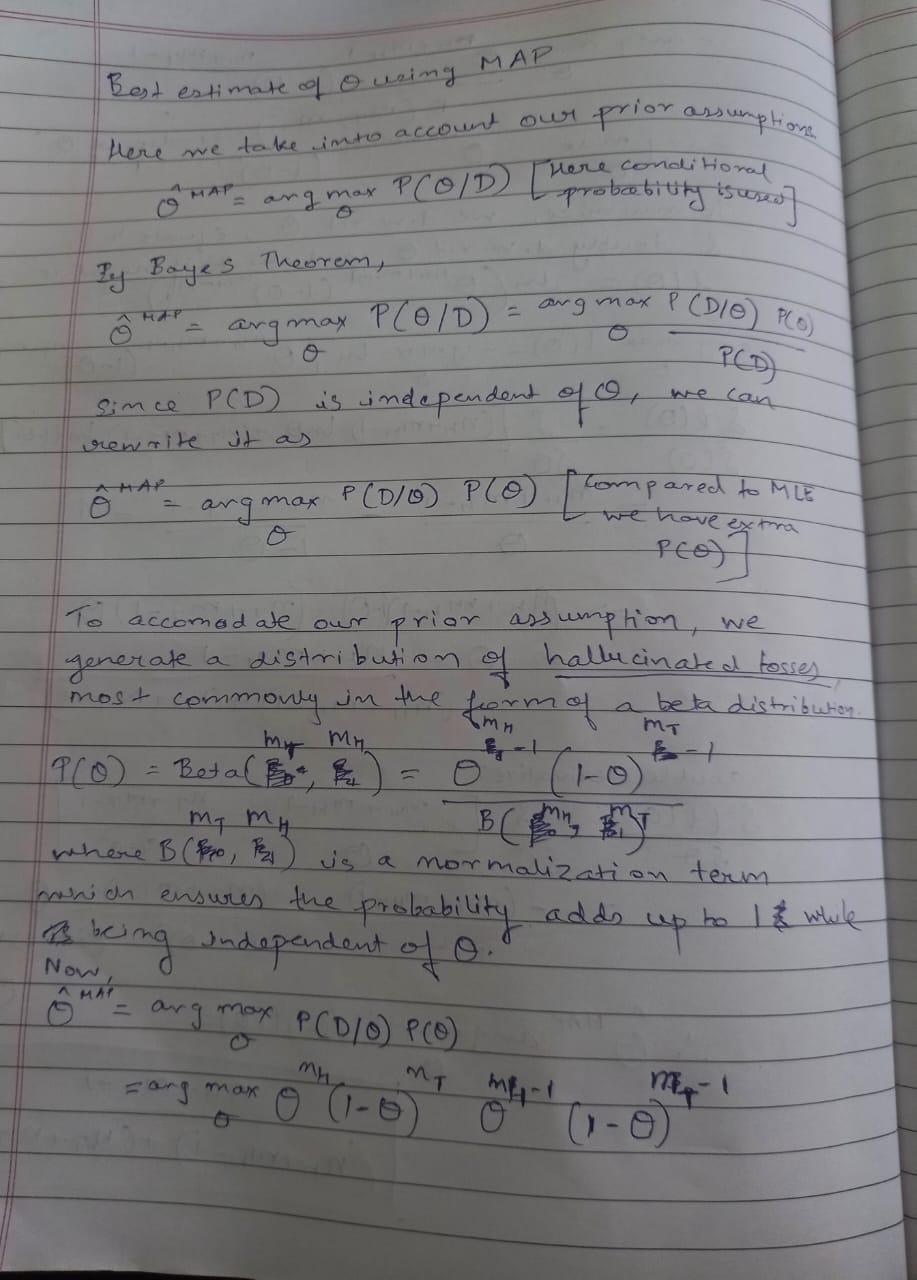 Best estimate of θ using MAP
Here we take into account our prior assumptions
θ̂ MAP = arg max θ P(θ/D) [Here conditional probability is used]
By Bayes Theorem,
θ̂ MAP = arg max θ P(θ/D) = arg max θ P(D/θ) P(θ) / P(D)
Since P(D) is independent of θ, we can
rewrite it as
θ̂ MAP = arg max θ P(D/θ) P(θ) [Compared to MLE we have extra P(θ)]
To accomodate our prior assumption, we
generate a distribution of hallucinated tosses
most commonly in the form of a beta distribution.
P(θ) = Beta(m_T, m_H) = θ^(m_H - 1) (1-θ)^(m_T - 1) / B(m_H, m_T)
where B(m_T, m_H) is a normalization term
which ensures the probability adds up to 1 while
being independent of θ.
Now,
θ̂ MAP = arg max θ P(D/θ) P(θ)
= arg max θ θ^(n_H) (1-θ)^(n_T) θ^(m_H - 1) (1-θ)^(m_T - 1)